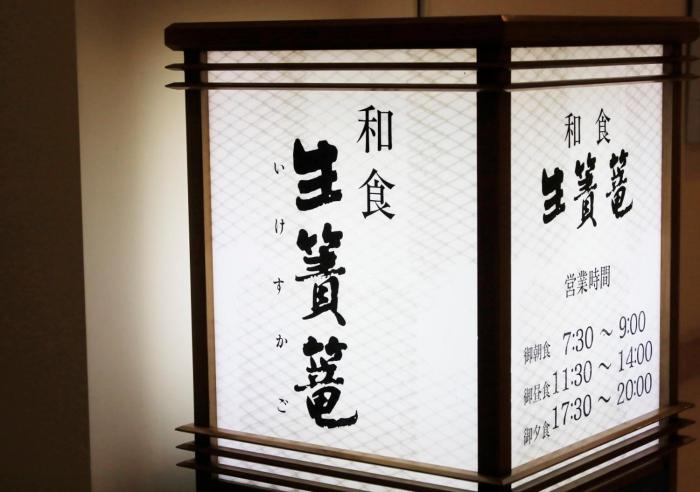 和食
生簀籠
いけすかご
和食
生簀籠
営業時間
御朝食 7:30 ～ 9:00
御昼食 11:30 ～ 14:00
御夕食 17:30 ～ 20:00